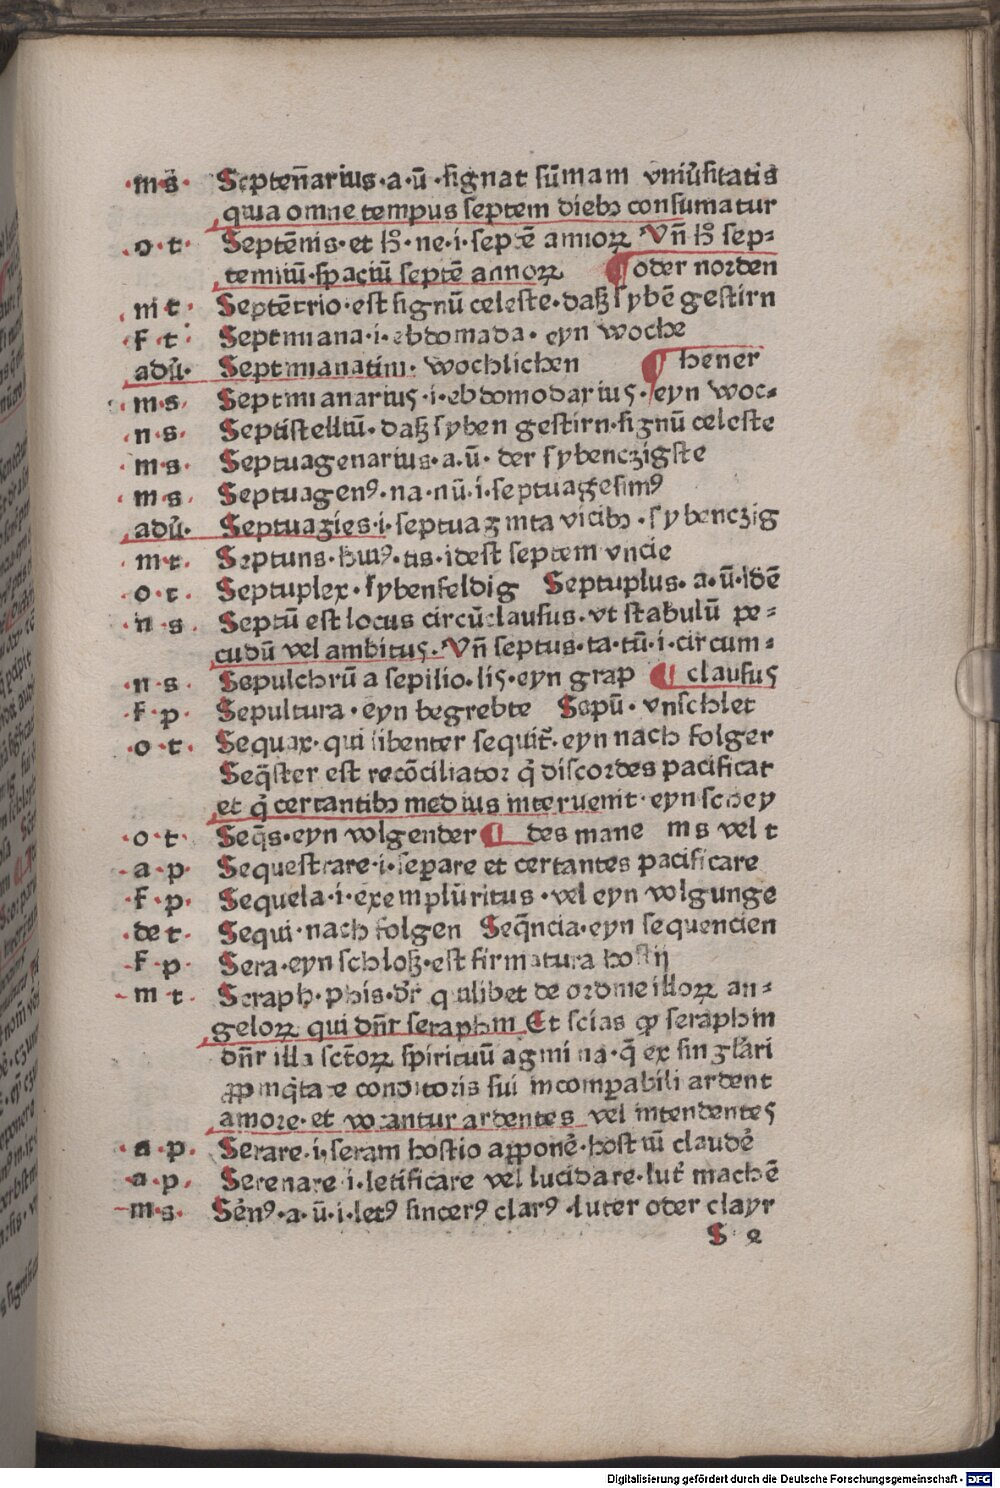 ·m·s· Septen̄arius·a·ū·signat sūmam vniūsitatis
quia omne tempus septem dieb⁊ consumatur
·o·t· Septēnis·et h̄·ne·i·septē annoꝝ Vn̄ h̄ sep⸗
tenniū·spaciū septē annoꝝ ¶ oder norden
·m t· Septētrio·est signū celeste·daß sybē gestirn
·f t· Septimana·i·ebdomada·eyn woche
adū· Septimanatim·wochlichen ¶ hener
·m·s· Septimanarius·i·ebdomodarius·eyn woc⸗
·n·s· Septistelliū·daß syben gestirn·signū celeste
·m·s· Septuagenarius·a·ū·der sybenczigste
·m·s· Septuagenꝰ·na·nū·i·septuagesimꝰ
adū· Septuagies·i·septuaginta vicib⁊·sybenczig
·m·t· Septuns·huiꝰ·tis·idest septem vncie
·o·t· Septuplex·sybenfeldig Septuplus·a·ū·idē
·n s· Septū est locus circūclausus·vt stabulū pe⸗
cudū vel ambitus·Vn̄ septus·ta·tū·i·circum⸗
·n·s· Sepulchrū a sepilio·lis·eyn grap ¶ clausus
·f·p· Sepultura·eyn begrebte Sepū·vnschlet
·o·t· Sequax·qui libenter sequit̄·eyn nach folger
Seq̄ster est recōciliator q̄ discordes pacificat
et q̄ certantib⁊ medius interuenit·eyn schey
·o·t· Seq̄s·eyn volgender ¶ des mane m s vel t
·a·p· Sequestrare·i·seꝑare et certantes pacificare
·f·p· Sequela·i·exemplū ritus·vel eyn volgunge
·de t· Sequi·nach folgen Seq̄ncia·eyn sequencien
·f·p· Sera·eyn schloß·est firmatura hostij
·m t· Seraph·phis·dr̄ quilibet de ordine illoꝝ an⸗
geloꝝ qui dn̄r seraphin Et scias ꝙ seraphin
dn̄r illa sctōꝝ spirituū agmina·q̄ ex singlāri
ꝓpinq̄tate conditoris sui incomꝑabili ardent
amore·et vocantur ardentes vel intendentes
·a·p· Serare·i·seram hostio apponē·hostiū claudē
·a·p· Serenare·i·letificare vel lucidare·lut̄ machē
·m·s· Serēnꝰ·a·ū·i·letꝰ sincerꝰ clarꝰ·luter oder clayr
S e
Digitalisierung gefördert durch die Deutsche Forschungsgemeinschaft - DFG